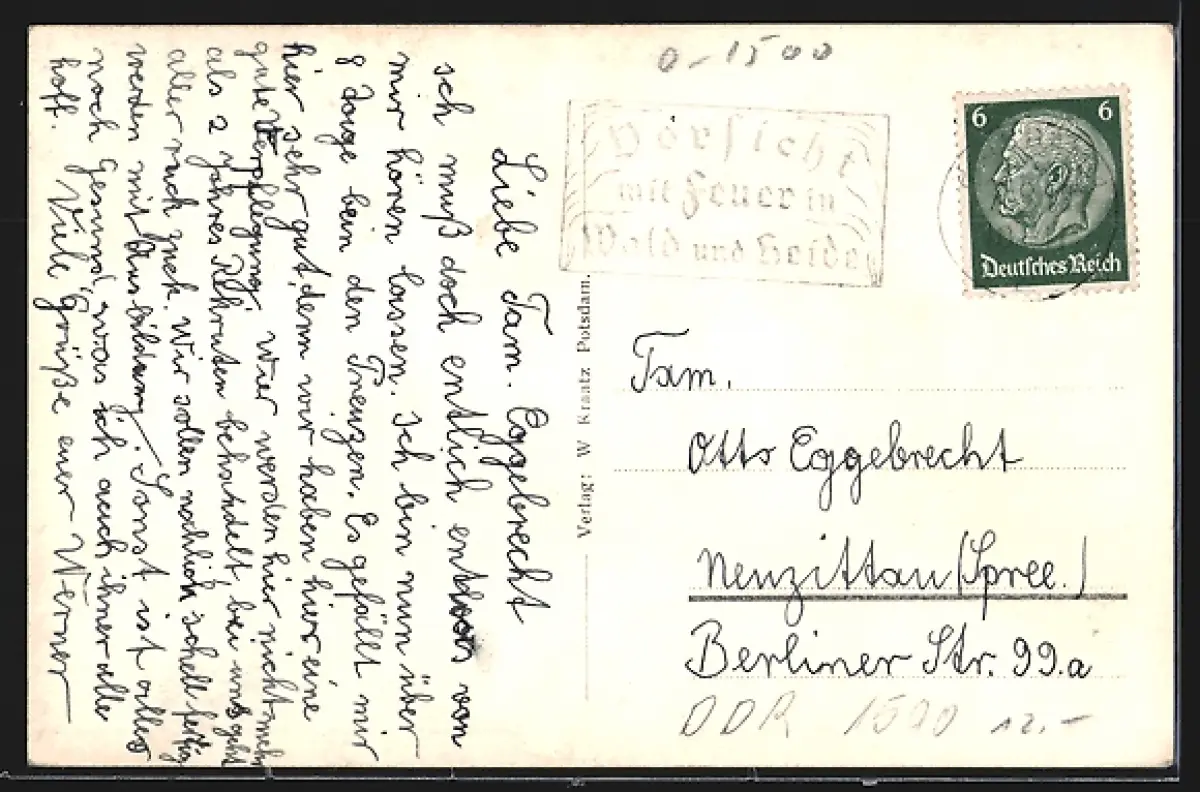 0-1500
Vorsicht
mit Feuer in
Wald und Heide
6 6
Deutsches Reich
Liebe Fam. Eggebrecht
ich muß doch entlich von
mir hören lassen. Ich bin nun über
8 Tage bein den Preuzen. Es gefällt mir
hier sehr gut, denn wir haben hier eine
gute Verpflegung, wier werden hier nicht mehr
als 2 Jahres Rekruten behandelt bei uns geht
aller ruck zuck. Wir sollen schell fertig
werden mit Ausbildung. Sonst ist alles
noch Gesund, was ich auch ihner alle
hoff. Viele Grüße euer Werner
Verlag: W Kraatz Potsdam.
Fam.
Otto Eggebrecht
Neuzittau (Spree.)
Berliner Str. 99.a
DDR 1500 12,-